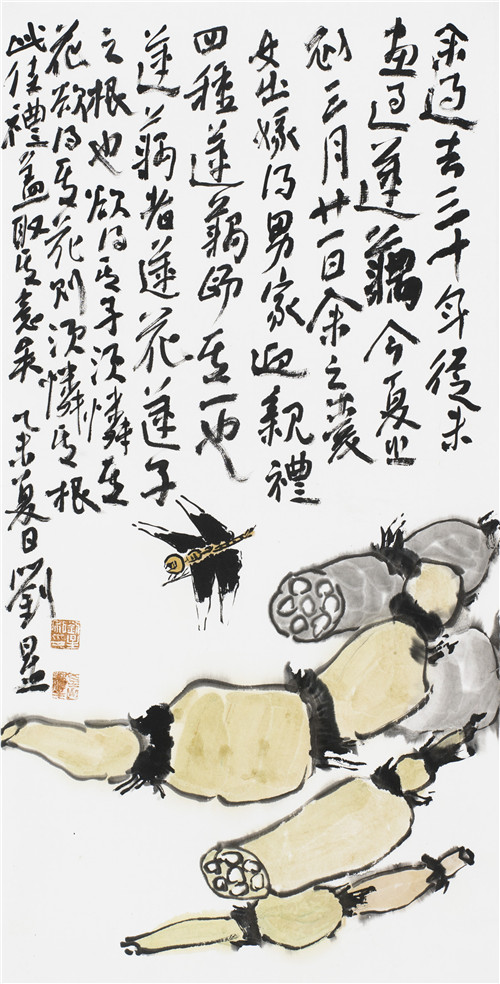 余過去三十年從未
画過蓮藕今夏
初三月廿一日余之愛
女出嫁得男家迎親禮
四種蓮藕即其一也
蓮藕者蓮花蓮子
之根也欲得其子須憐其
花欲得其花則須憐其根
此佳禮蓋取其意矣 乙未夏日劉